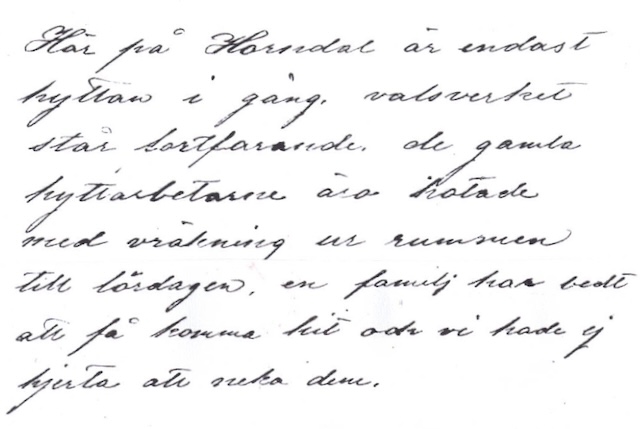 Här på Horndal är endast
hyttan i gång. valsverket
står fortfarande. de gamla
hyttarbetarne äro hotade
med vräkning ur rummen
till lördagen, en familj har bedt
att få komma hit och vi hade ej
hjerta att neka dem.